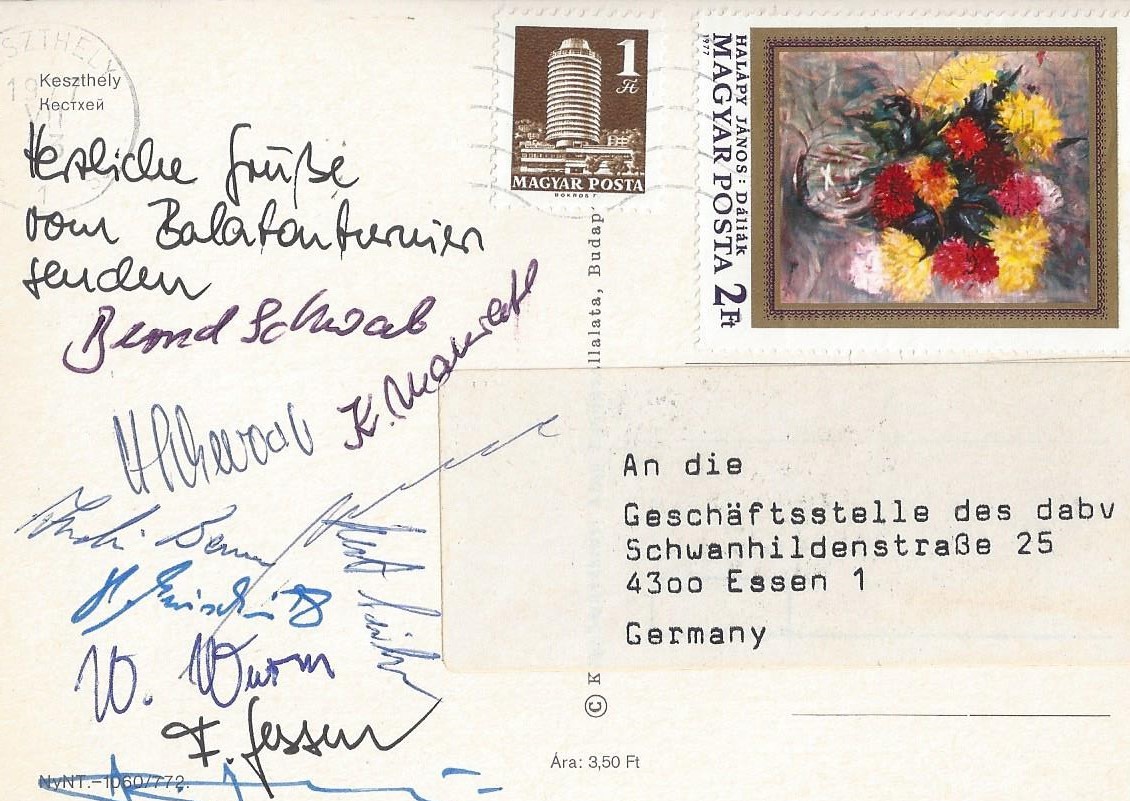 Keszthely
Кестхей
Herzliche Grüße
vom Balatonturnier
senden
Bernd Schwab
K.
HSchwab
W. Wurm
F. Jessen
NyNT.–1060/772.
1 Ft
MAGYAR POSTA
HALÁPY JÁNOS: Dáliák
MAGYAR POSTA 2 Ft
1977
An die
Geschäftsstelle des dabv
Schwanhildenstraße 25
43oo Essen 1
Germany
© K
llalata, Budap
Ára: 3,50 Ft